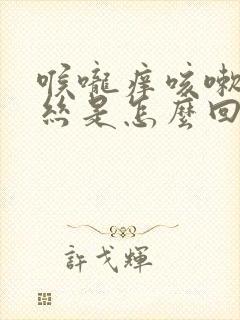 喉嚨痒咳嗽
絲是怎麼回
許戈輝